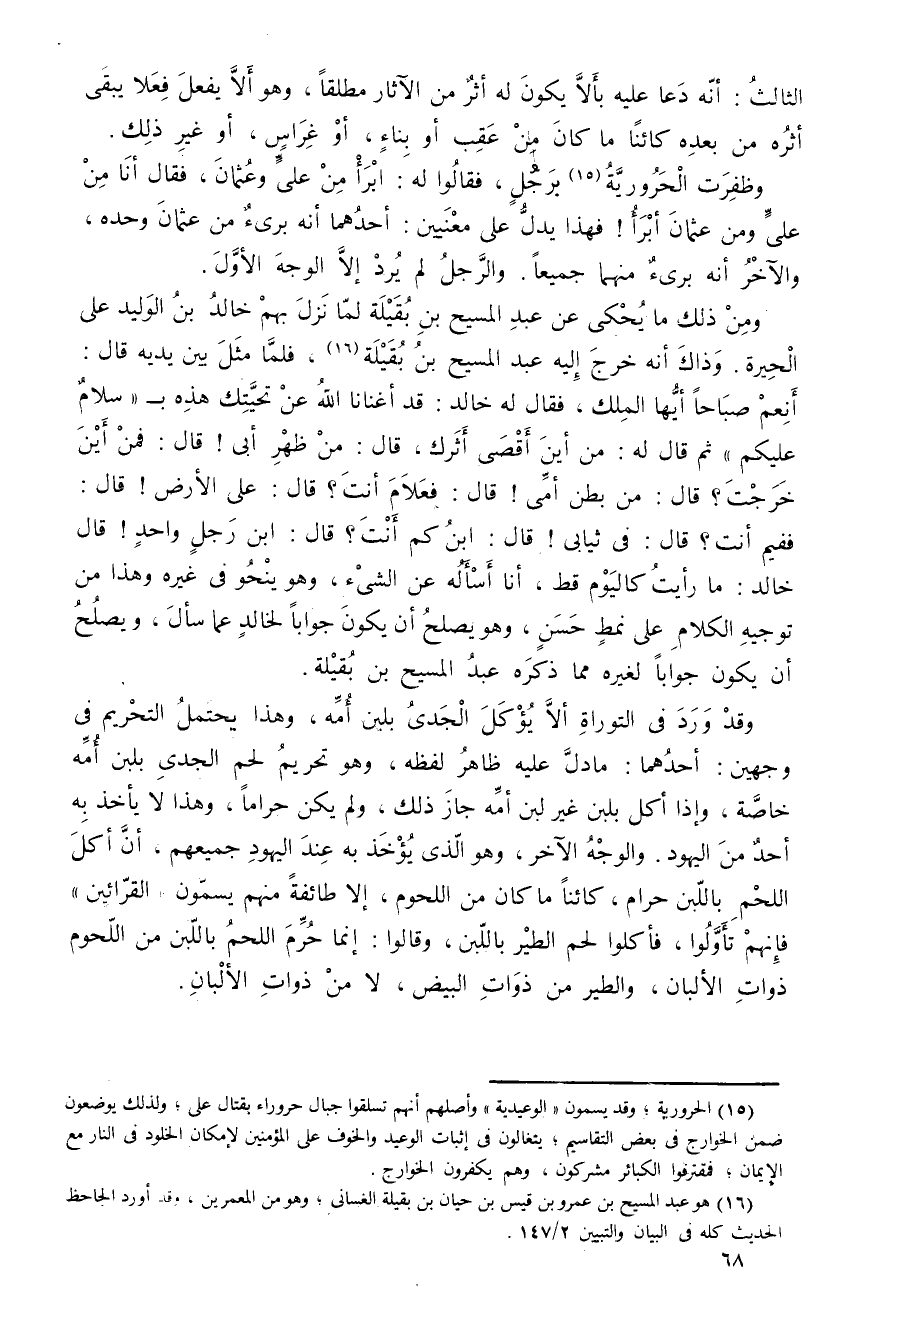 الثالثُ : أنّه دَعا عليه بأَلاَّ يكونَ له أثرٌ من الآثار مطلقاً ، وهو أَلاَّ يفعلَ فِعَلا يبقَى
أثرُه من بعدِه كائنًا ما كانَ مِنْ عَقِب أو بِناءٍ ، أوْ غِرَاسٍ ، أو غيرِ ذلِك .
وظفِرَت الْحَرُورِيَّةُ(١٥) بَرَجُلٍ ، فقالُوا له : ابْرَأْ مِنْ علىٍّ وعُثمانَ ، فقال أنَا مِنْ
علىٍّ ومن عثمانَ أَبْرَأُ ! فهذا يدلُّ على معْنَيين : أحدُهما أنه برىءٌ من عثمانَ وحده ،
والآخْرُ أنه برىءٌ منهما جميعاً . والرَّجلُ لم يُردْ إلاَّ الوجهَ الأوَّلَ .
ومِنْ ذلك ما يُحْكى عن عبدِ المسيح بنِ بُقَيْلَة لمّا نَزلَ بهمْ خالدُ بنُ الوَليد على
الْحِيرة . وَذاكَ أنه خرجَ إليه عبد المسيح بنُ بُقَيْلَة(١٦) ، فلمَّا مثَلَ بين يديه قال :
أَنعِمْ صبَاحاً أيُّها الملِك ، فقال له خالد : قد أغنانا اللهُ عنْ تحيَّتِك هذِه بـ « سلامٌ
عليكم » ثم قال له : من أينَ أَقْصَى أَثَرك ، قال : منْ ظهْرِ أبى ! قال : فمنْ أَيْنَ
خَرَجْتَ ؟ قال : من بطن أمِّى ! قال : فعَلاَمَ أنتَ ؟ قال : على الأرض ! قال :
ففيم أنت ؟ قال : فى ثيابى ! قال : ابنُ كم أَنْتَ ؟ قال : ابن رَجلٍ واحدٍ ! قال
خالد : ما رأيتُ كاليَوْم قط ، أنا أَسْأَلُه عن الشىْء ، وهو ينْحُو فى غيره وهذا من
توجيهِ الكلامِ على نمطٍ حَسَنٍ ، وهو يصلحُ أن يكونَ جواباً لخالدٍ عما سأَلَ ، ويصلحُ
أن يكون جواباً لغيره مما ذكرَه عبدُ المسيح بن بُقيْلة .
وقدْ وَرَدَ فى التوراةِ ألاَّ يُؤْكَلَ الْجَدىُ بلبن أُمِّه ، وهذا يحتملُ التحْريم فى
وجهين : أحدُهما : مادلَّ عليه ظاهرُ لفظه ، وهو تحريمُ لحم الجدىِ بلبن أُمِّه
خاصَّة ، وإذا أكل بلبن غير لبن أمِّه جازَ ذلك ، ولم يكن حراماً ، وهذا لا يأخذ بِه
أحدٌ منَ اليهود . والوجْهُ الآخر ، وهو الّذى يُؤْخَذ به عِندَ اليهودِ جميعهم ، أنَّ أكلَ
اللحْمِ باللّبن حرام ، كائناً ما كان من اللحوم ، إلا طائفةً منهم يسمّون القرّائين »
فإِنهمْ تَأَوَّلُوا ، فأكلوا لحم الطيْر باللّبن ، وقالوا : إنما حُرِّمَ اللحمُ باللّبن من اللّحوم
ذواتِ الألبان ، والطير من ذوَاتِ البيض ، لا منْ ذواتِ الألْبانِ .
(١٥) الحرورية ؛ وقد يسمون « الوعيدية » وأصلهم أنهم تسلقوا جبال حروراء بقتال على ؛ ولذلك يوضعون
ضمن الخوارج فى بعض التقاسيم ؛ يتغالون فى إثبات الوعيد والخوف على المؤمنين لإمكان الخلود فى النار مع
الإيمان ؛ فمقترفوا الكبائر مشركون ، وهم يكفرون الخوارج .
(١٦) هو عبد المسيح بن عمرو بن قيس بن حيان بن بقيلة الغسانى ؛ وهو من المعمرين ، وقد أورد الجاحظ
الحديث كله فى البيان والتبيين ١٤٧/٢ .
٦٨